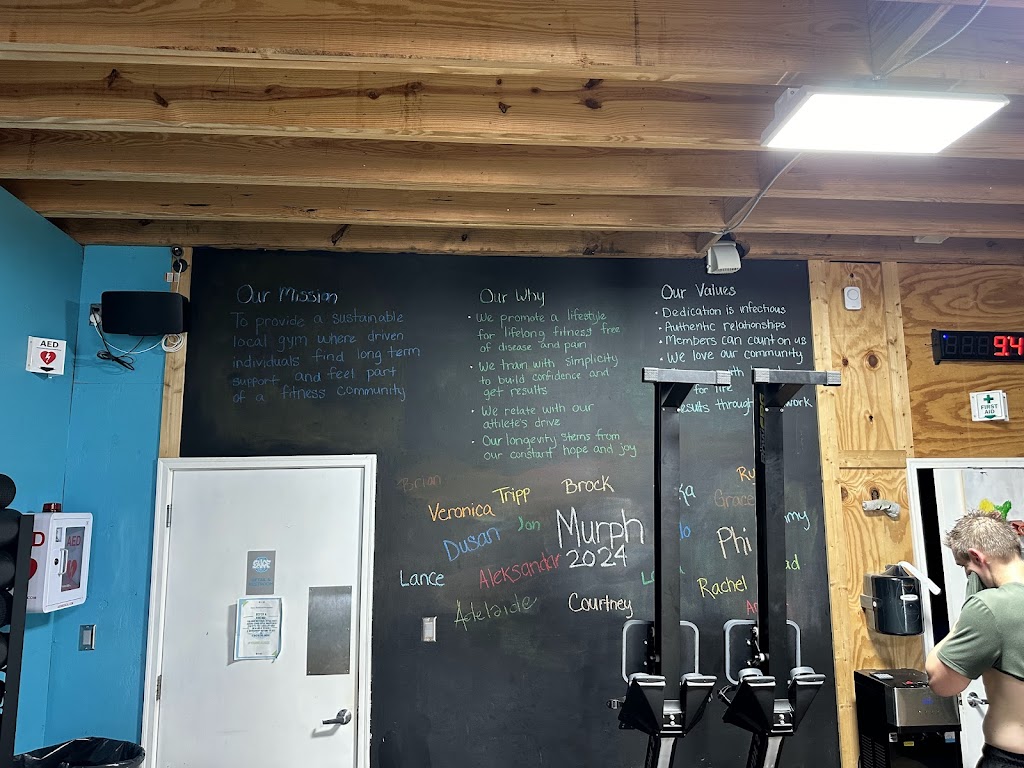 Our Mission
To provide a sustainable
local gym where driven
individuals find long term
support and feel part
of a fitness community
Our Why
• We promote a lifestyle
for lifelong fitness free
of disease and pain
• We train with simplicity
to build confidence and
get results
• We relate with our
athlete's drive
• Our longevity stems from
our constant hope and joy
Our Values
• Dedication is infectious
• Authentic relationships
• Members can count on us
• We love our community
for life
results through work
Brian
Veronica
Tripp
Brock
Dusan
Jon
Murph
2024
Lance
Aleksandar
Adelaide
Courtney
Grace
Phi
Rachel
AED
AED
FIRST
AID
9:4